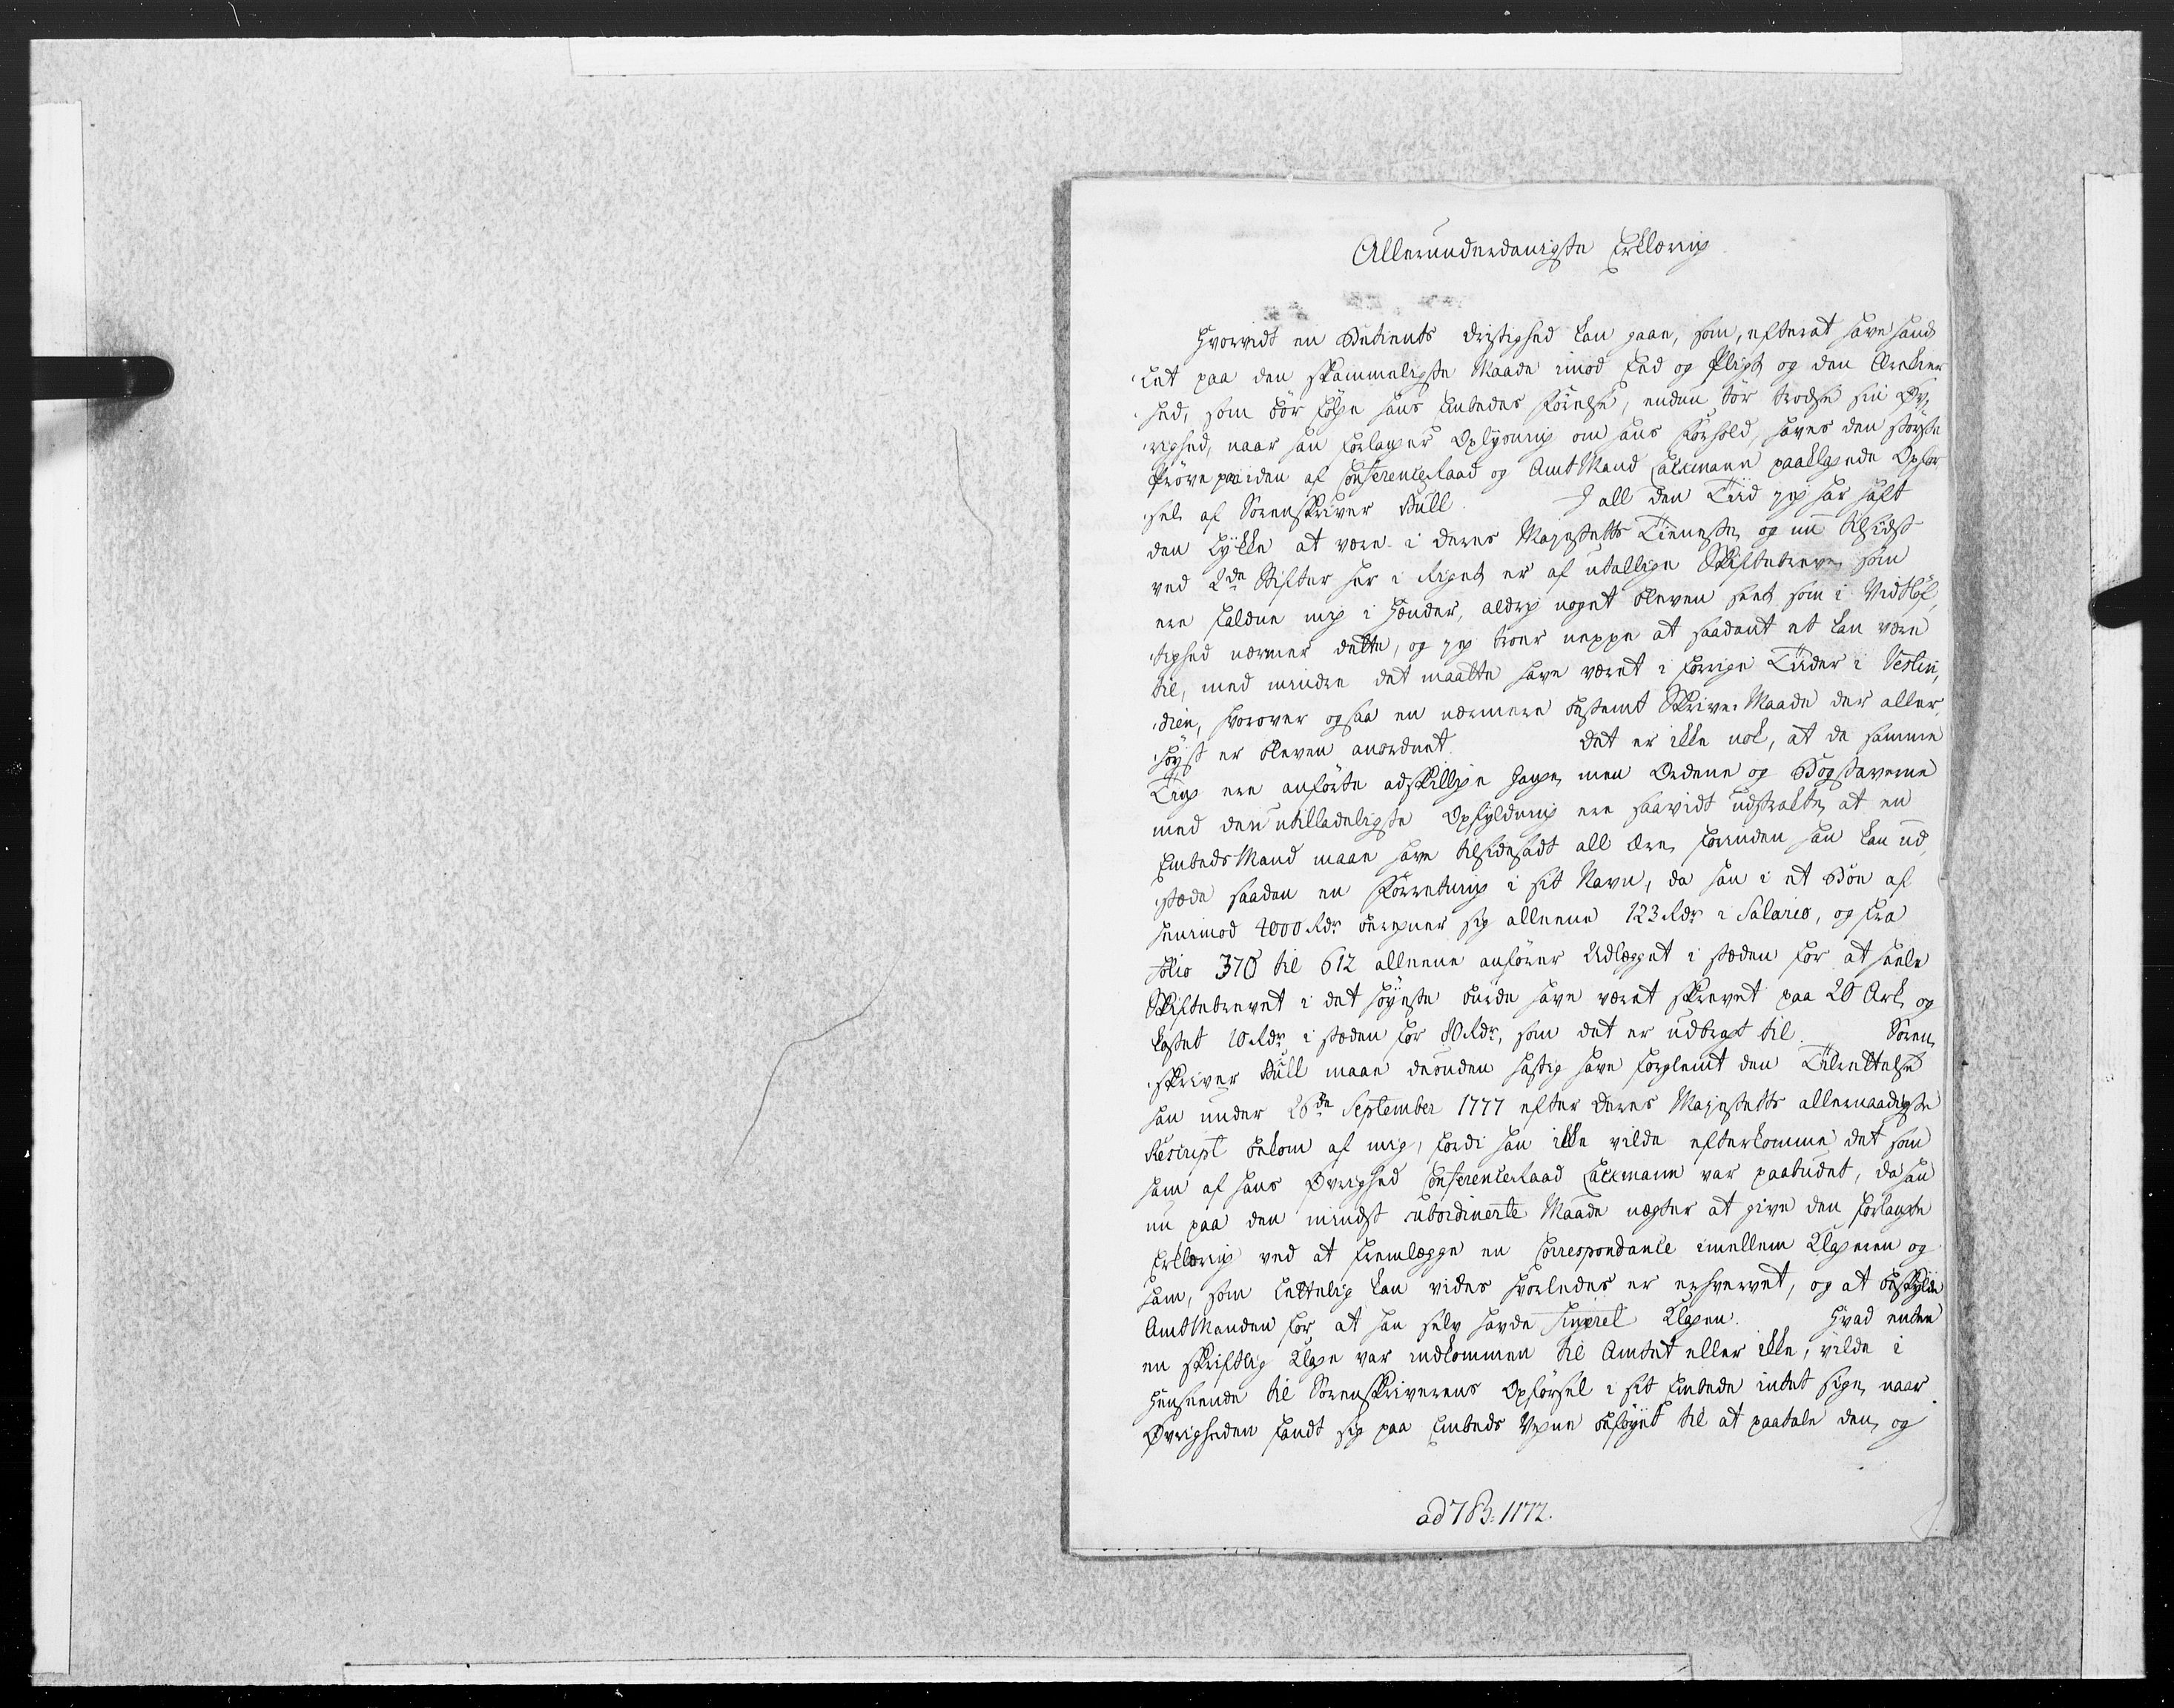 Allerunderdanigste Erklæring
Hvorvidt en Betients dristighed kan gaae, som, efterat have hand-
let paa den skammeligste Maade imod Eed og Pligt og den Ærekier-
hed, som bör følge hans Embedes Förelse, endnu tör trodse sin Øv-
righed, naar han forlanger Oplysning om hans Forhold, haves den störste
Pröve paa iden af ConferenceRaad og AmtMand Collmann paaklagede Opför-
sel af Sorenskriver Bull. I all den Tiid jeg har haft
den Lykke at være i deres Majestetts Tieneste, og nu tilsidst
ved 2de Stifter her i Riget, er af utallige Skiftebreve, som
ere faldne mig i Hænder, aldrig noget bleven seet som i Vidtløf-
tighed nærmer dette, og jeg troer neppe at saadant et kan være
til, med mindre det maatte have været i forrige Tiider i Vestin-
dien, hvorover ogsaa en nærmere bestemt Skrive-Maade der aller-
höyst er bleven anordnet. Det er ikke nok, at de samme
Ting ere anförte adskillige gange, men Ordene og Bogstaverne
med den utilladeligste Opfyldning ere saavidt udstrakte, at en
EmbedsMand maae have tilsidesadt all Ære, forinden han kan ud-
stæde saaden en Forretning i sit Navn, da han i et Boe af
henimod 4000 Rdr beregner sig alleene 123 Rdr i Salario, og fra
folio 370 til 612 alleene anförer Udlægget i stæden for at heele
Skiftebrevet i det höyeste burde have været skrevet paa 20 Ark, og
kostet 10 Rdr i stæden for 80 Rdr, som det er udbragt til. Soren-
skriver Bull maae desuden hastig have forglemt den Tilrettelse
han under 26de September 1777 efter Deres Majestetts allernaadigste
Rescript bekom af mig, fordi han ikke vilde efterkomme det som
ham af hans Øvrighed ConferenceRaad Collmann var paabudet, da han
nu paa den mindst subordinerte Maade nægter at give den forlangte
Erklæring ved at fremlægge en Correspondance imellem Klageren og
ham, som lettelig kan vides hvorledes er erhvervet, og at beskylde
AmtManden for at han selv havde fingeret Klagen. Hvad enten
en skriftlig Klage var indkommen til Amtet eller ikke, vilde i
Henseende til Sorenskriverens Opförsel i sit Embede intet sige, naar
Øvrigheden fandt sig paa Embeds Vegne beföyet til at paatale den, og
ad 783-1172.